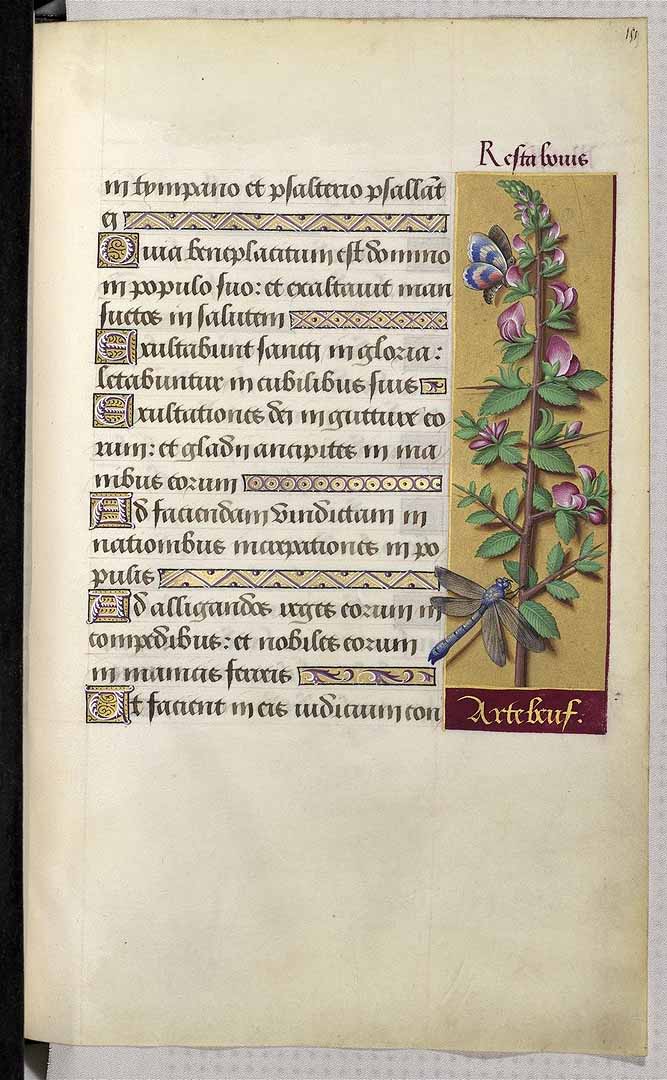 Resta bouis
in tympano et psalterio psallāt
ei
Quia beneplacitum est domino
in populo suo: et exaltauit man
suetos in salutem
Exultabunt sancti in gloria:
letabuntur in cubilibus suis
Exultationes dei in gutture eo
rum: et gladii ancipites in ma
nibus eorum
Ad faciendam vindictam in
nationibus increpationes in po
pulis
Ad alligandos reges eorum in
compedibus: et nobiles eorum
in manicis ferreis
Ut faciant in eis iudicium con
Artebeuf.